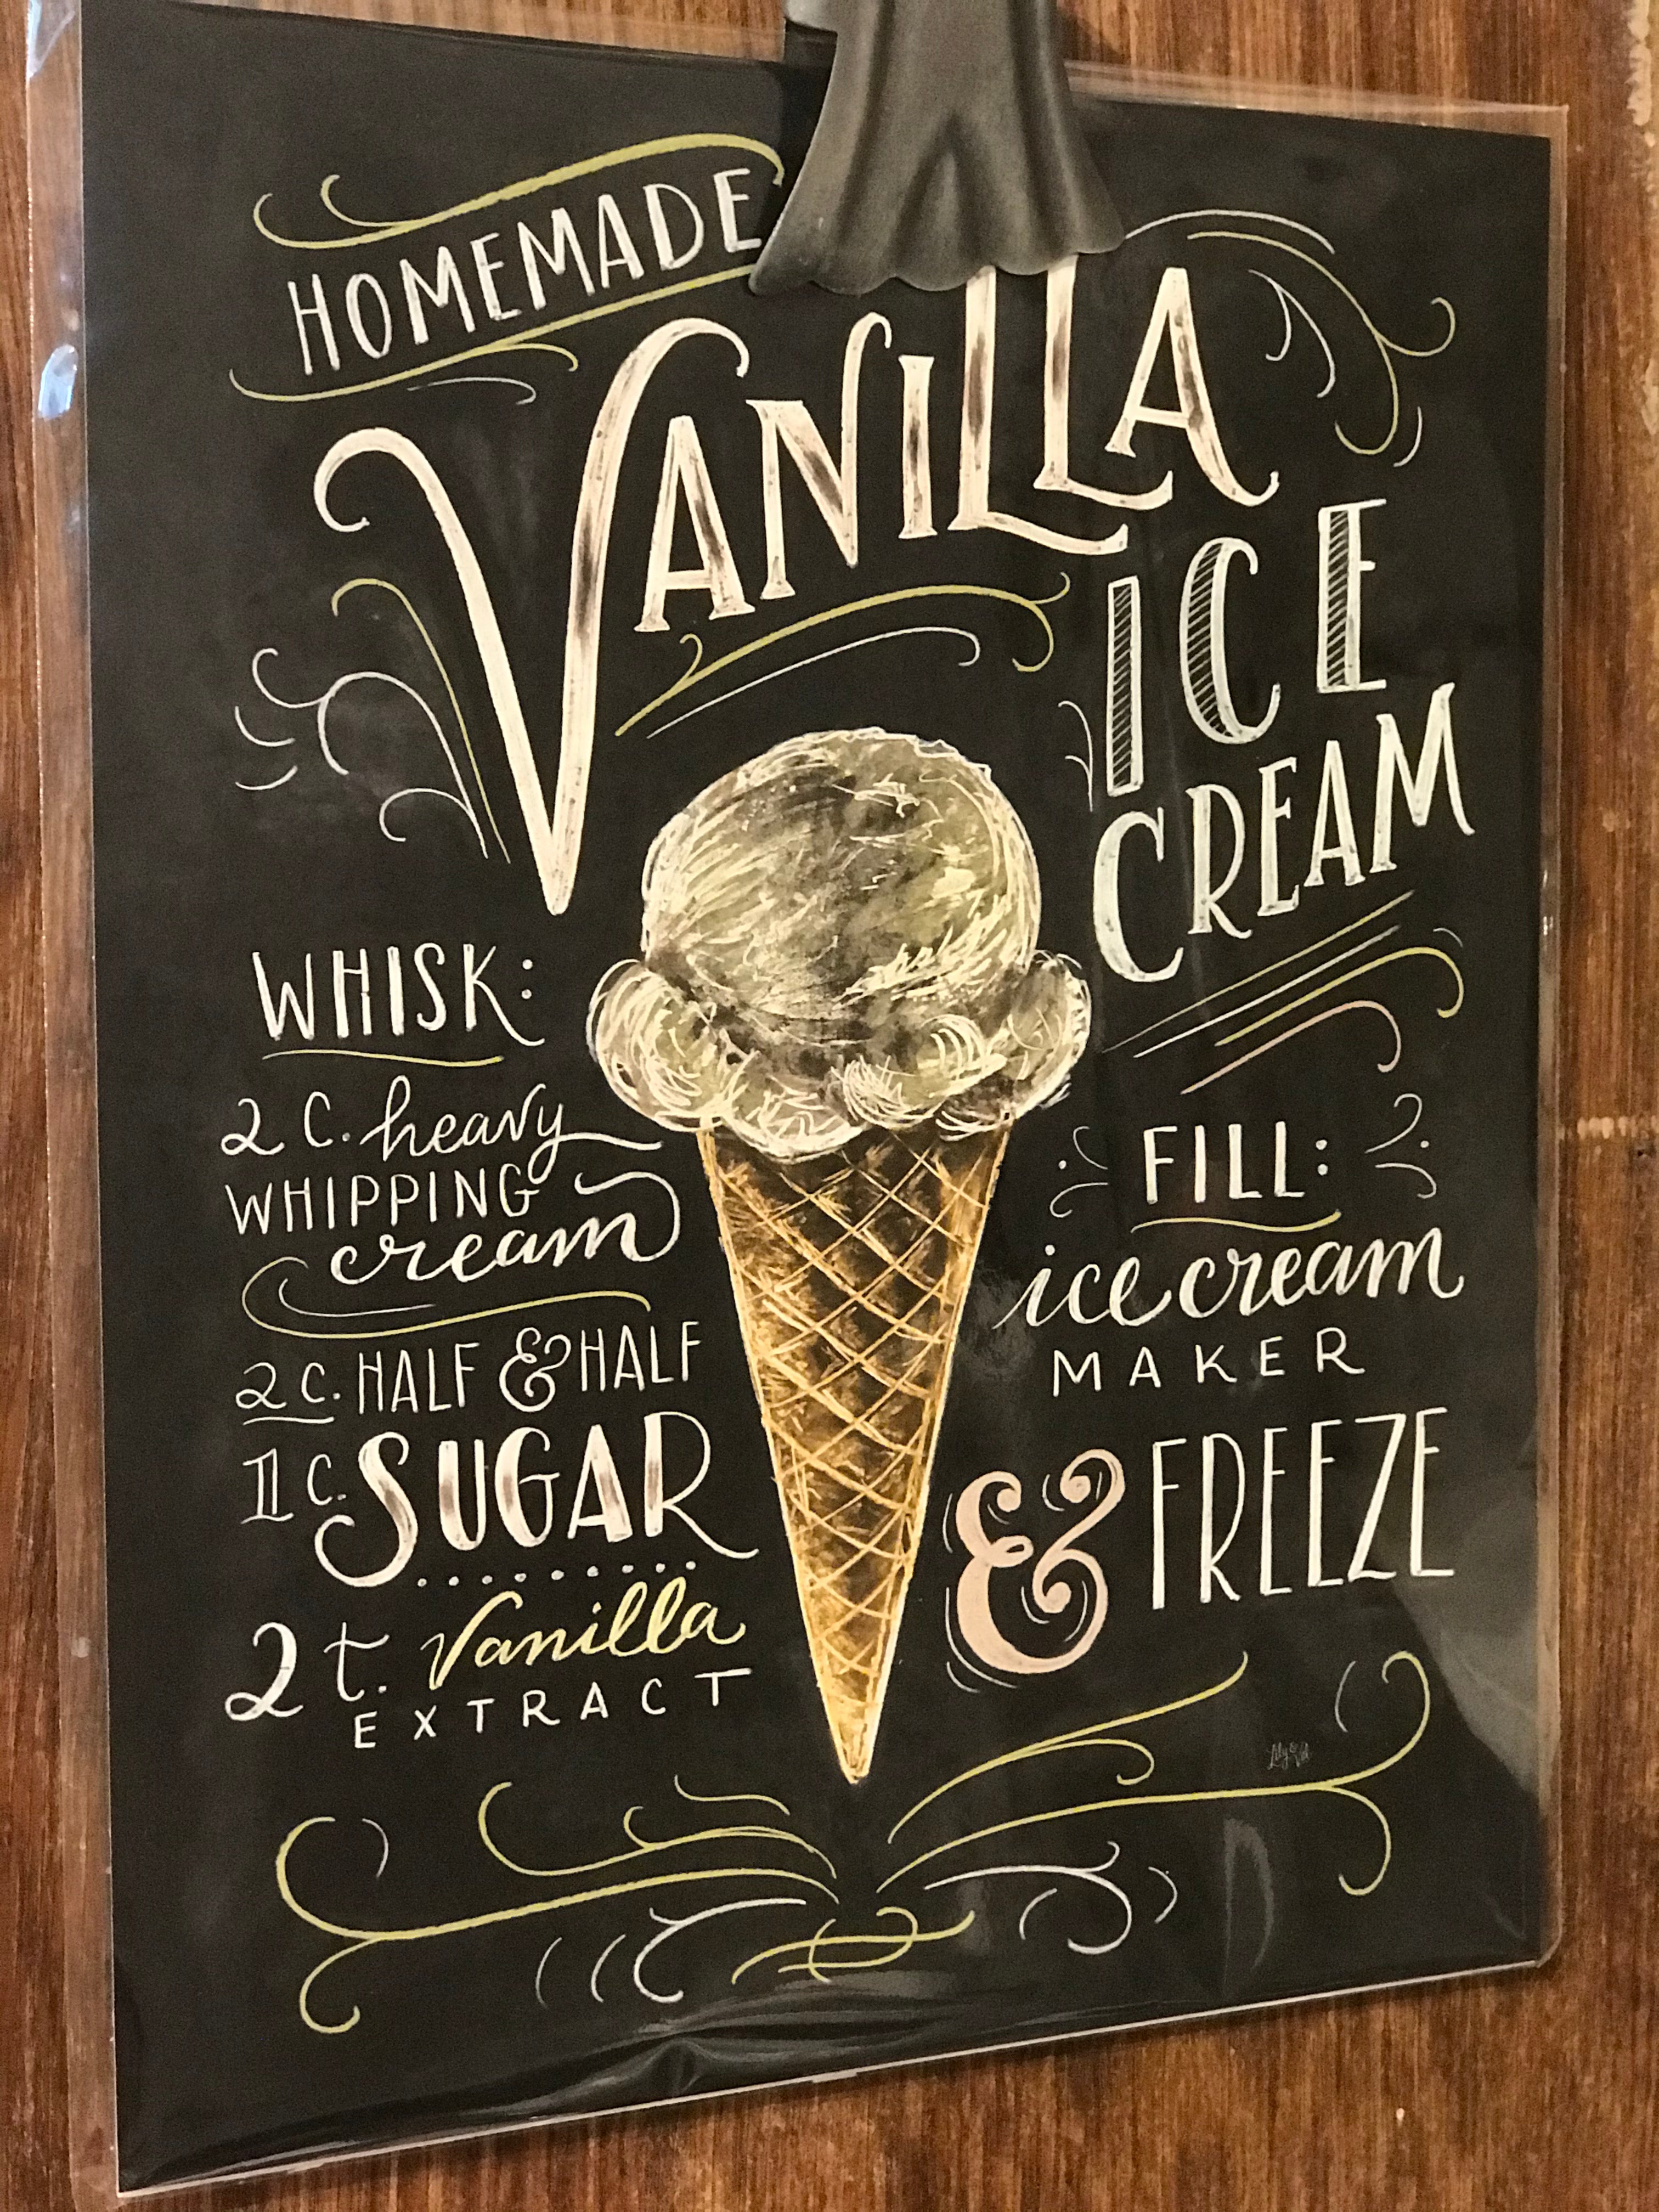 HOMEMADE
VANILLA
ICE
CREAM
WHISK:
2 C. heavy
WHIPPING
cream
2 C. HALF & HALF
1 C. SUGAR
2 t. Vanilla
EXTRACT
FILL:
ice cream
MAKER
& FREEZE
Lily & Val